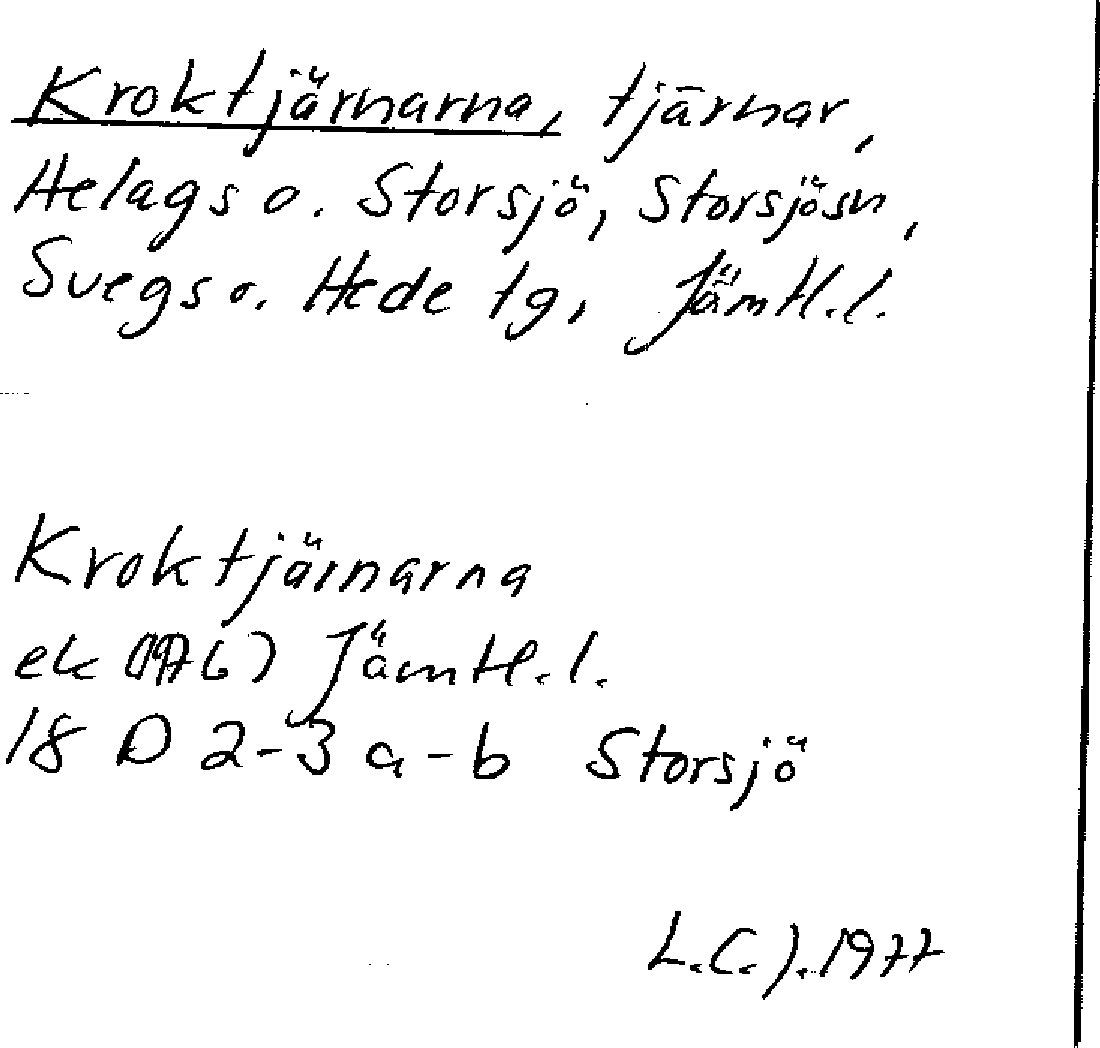 Kroktjärnarna, tjärnar,
Helags o. Storsjö, Storsjösn,
Svegs o. Hede tg, Jämtl.l.
Kroktjärnarna
ek (1976) Jämtl.l.
18 D 2-3 a-b Storsjö
L.C.J.1977